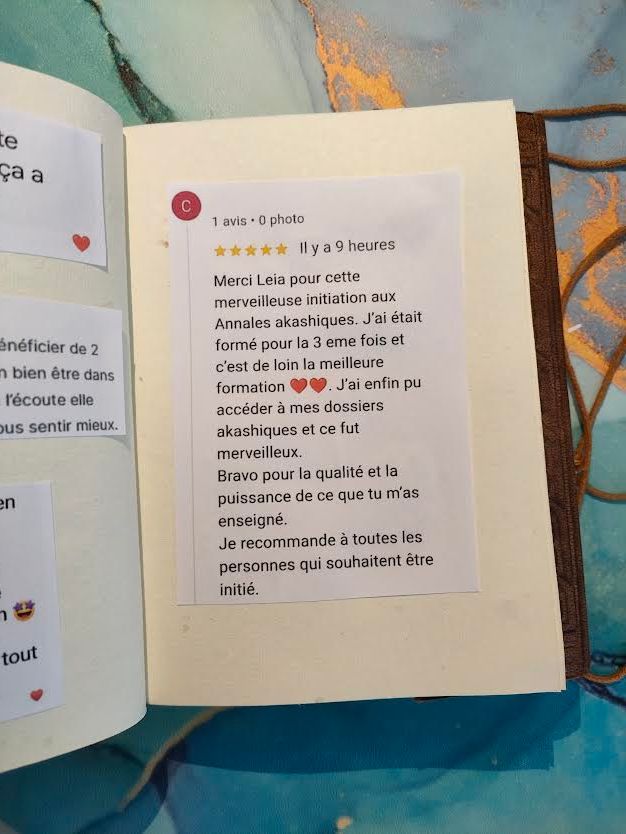 te
ça a
❤️
énéficier de 2
n bien être dans
l'écoute elle
ous sentir mieux.
en
n 🤩
tout
❤️
C
1 avis • 0 photo
⭐⭐⭐⭐⭐ Il y a 9 heures
Merci Leia pour cette
merveilleuse initiation aux
Annales akashiques. J'ai était
formé pour la 3 eme fois et
c'est de loin la meilleure
formation ❤️❤️. J'ai enfin pu
accéder à mes dossiers
akashiques et ce fut
merveilleux.
Bravo pour la qualité et la
puissance de ce que tu m'as
enseigné.
Je recommande à toutes les
personnes qui souhaitent être
initié.